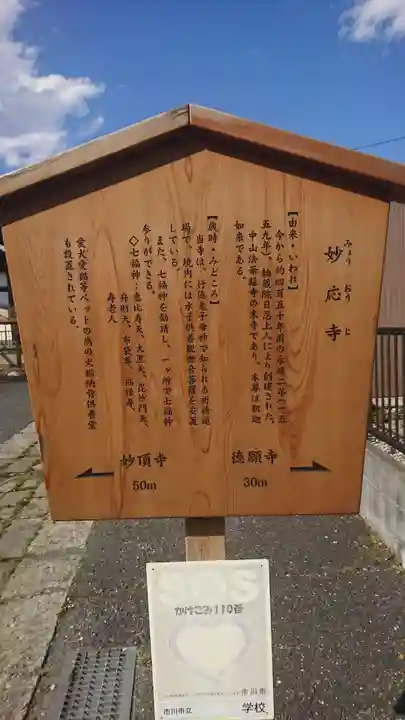 妙応寺
みょう おう じ
【由来・いわれ】
今から約四百五十年前の永禄二年(一五
五九年)、
中山法華経寺の末寺であり、本尊は釈迦
如来である。
【歳時・みどころ】
当寺は、行徳鬼子母神で知られる祈祷道
場で、境内には水子供養観世音菩薩を安置
している。
また、七福神を勧請し、一ヶ所で七福神
参りができる。
◇七福神:恵比寿天、大黒天、毘沙門天、
弁財天、布袋尊、福禄寿、
寿老人
愛犬愛猫等ペットの為の犬猫納骨供養堂
も設置されている。
妙頂寺
50m
徳願寺
30m
SOS
かけこみ110番
市川市
市川市立 学校